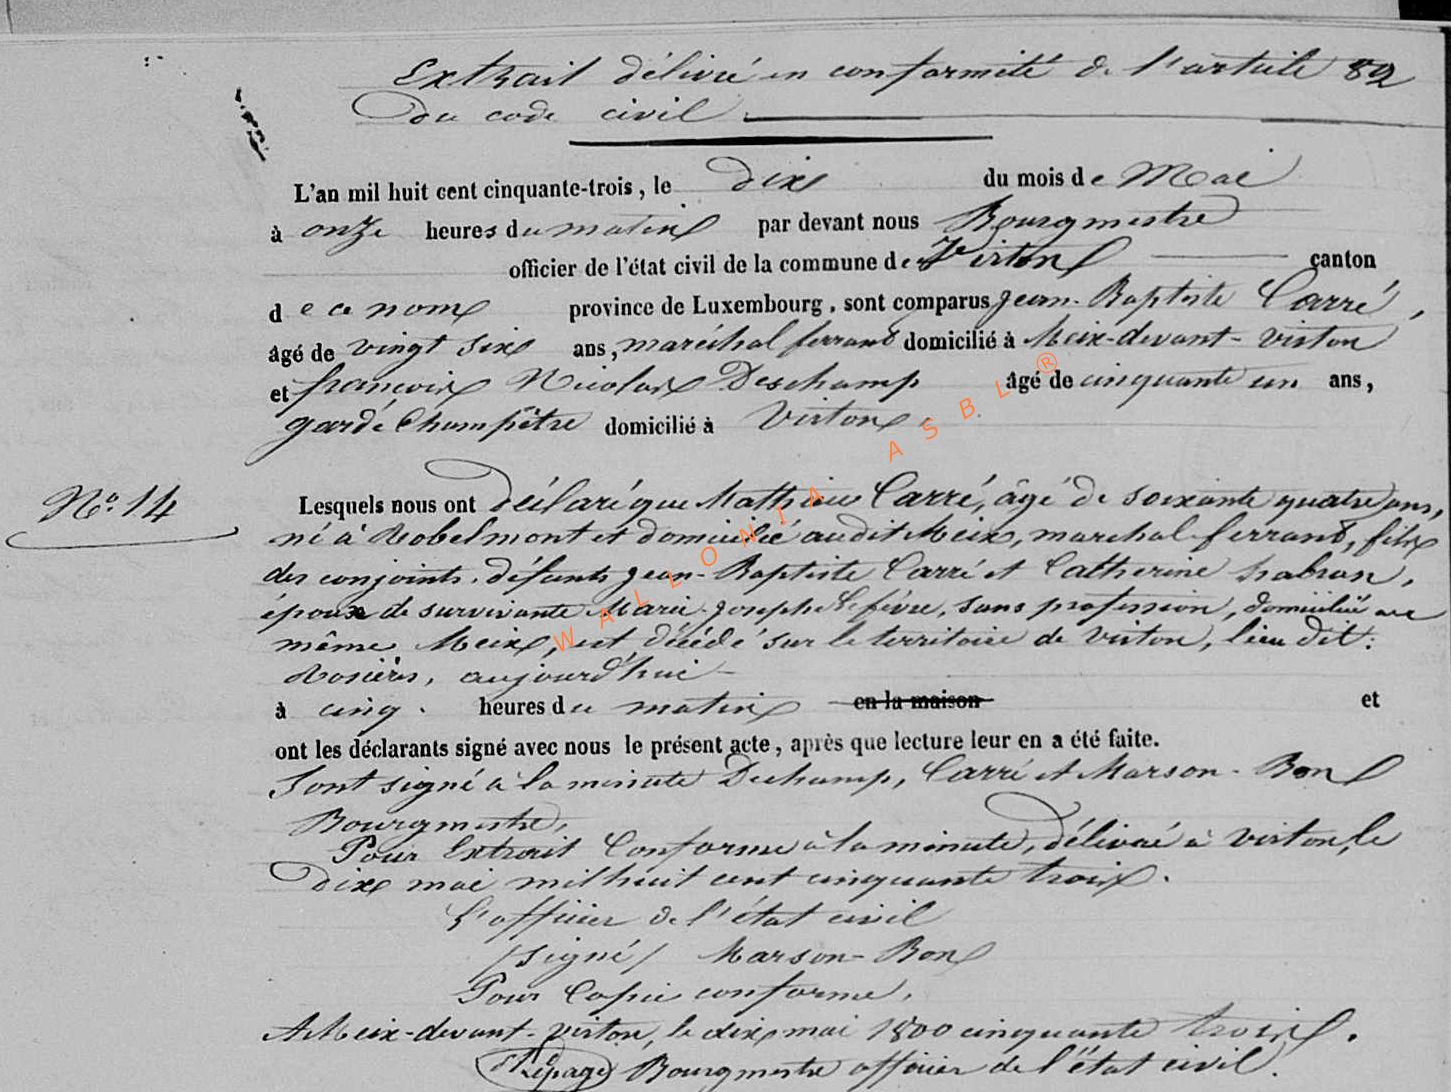 Extrait délivré en conformité de l'article 82
du code civil
L'an mil huit cent cinquante-trois, le dix du mois de Mai
à onze heures du matin par devant nous Bourgmestre
officier de l'état civil de la commune de Virton canton
de ce nom province de Luxembourg, sont comparus Jean-Baptiste Carré,
âgé de vingt six ans, maréchal ferrant domicilié à Meix-devant-virton
et françois Nicolas Deschamp âgé de cinquante un ans,
garde Champêtre domicilié à Virton,
N° 14
Lesquels nous ont déclaré que Mathieu Carré, âgé de soixante quatre ans,
né à Robelmont et domicilié audit Meix, marchal ferrant, fils
des conjoints défunts Jean-Baptiste Carré et Catherine
époux de survivante Marie-Josephe Lefévre, sans profession, domiciliée au
même Meix, est décédé sur le territoire de Virton, lieu dit:
Rosières, aujourd'hui
à cinq heures du matin en la maison et
ont les déclarants signé avec nous le présent acte, après que lecture leur en a été faite.
Sont signé à la minute Dechamp, Carré et Marson-Bon
Bourgmestre,
Pour Extrait Conforme à la minute, délivré à Virton, le
dix mai mil huit cent cinquante trois.
L'officier de l'état civil
/signé/ Marson-Bon
Pour Copie conforme,
A Meix-devant-virton, le dix mai 1800 cinquante trois.
Lepage Bourgmestre officier de l'état civil.
WALLONIA ASBL ®